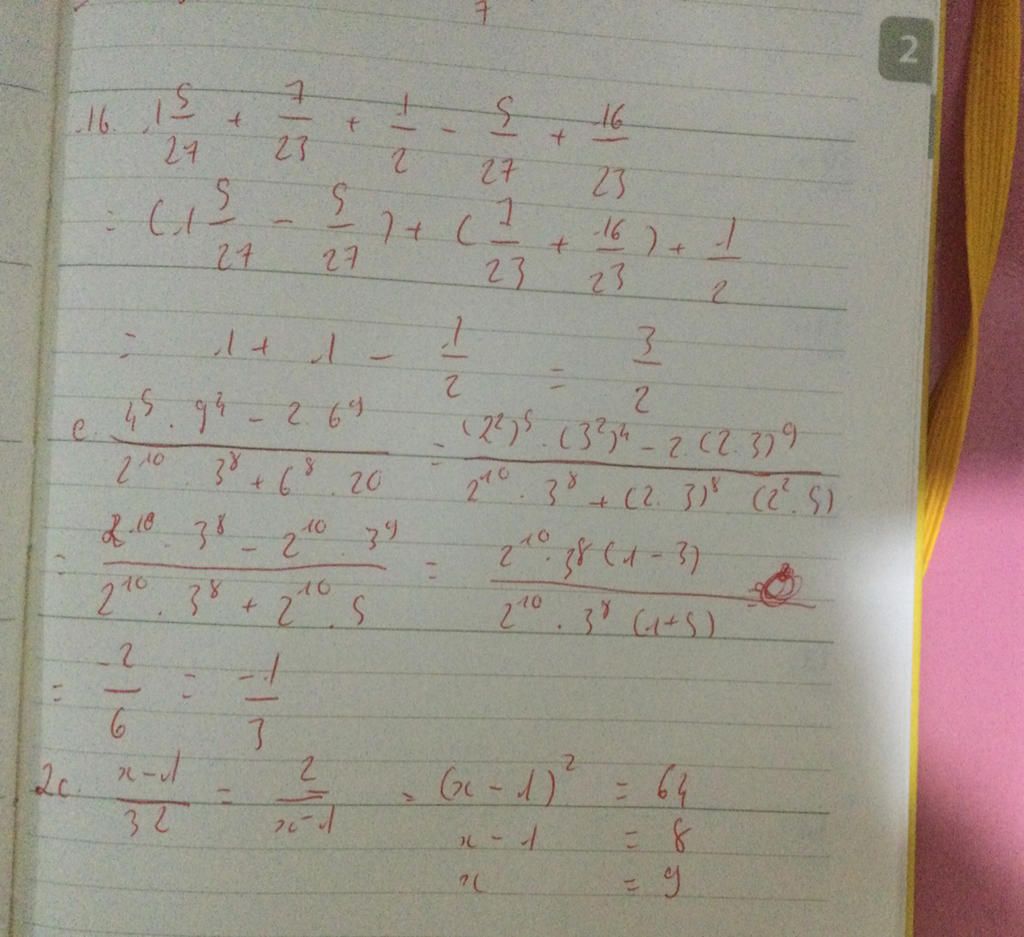 7
2
16. 1 5/27 + 7/23 + 1/2 - 5/27 + 16/23
= (1 5/27 - 5/27) + (7/23 + 16/23) + 1/2
= 1 + 1 - 1/2 = 3/2
c. (4⁵ . 9⁴ - 2 . 6⁹)/(2¹⁰ . 3⁸ + 6⁸ . 20) = ((2²)⁵ . (3²)⁴ - 2 . (2 . 3)⁹)/(2¹⁰ . 3⁸ + (2 . 3)⁸ (2² . 5))
= (2¹⁰ . 3⁸ - 2¹⁰ . 3⁹)/(2¹⁰ . 3⁸ + 2¹⁰ . 5) = (2¹⁰ . 3⁸ (1 - 3))/(2¹⁰ . 3⁸ (1 + 5))
= -2/6 = -1/3
2c. (x - 1)/32 = 2/(x - 1) = (x - 1)² = 64
x - 1 = 8
x = 9